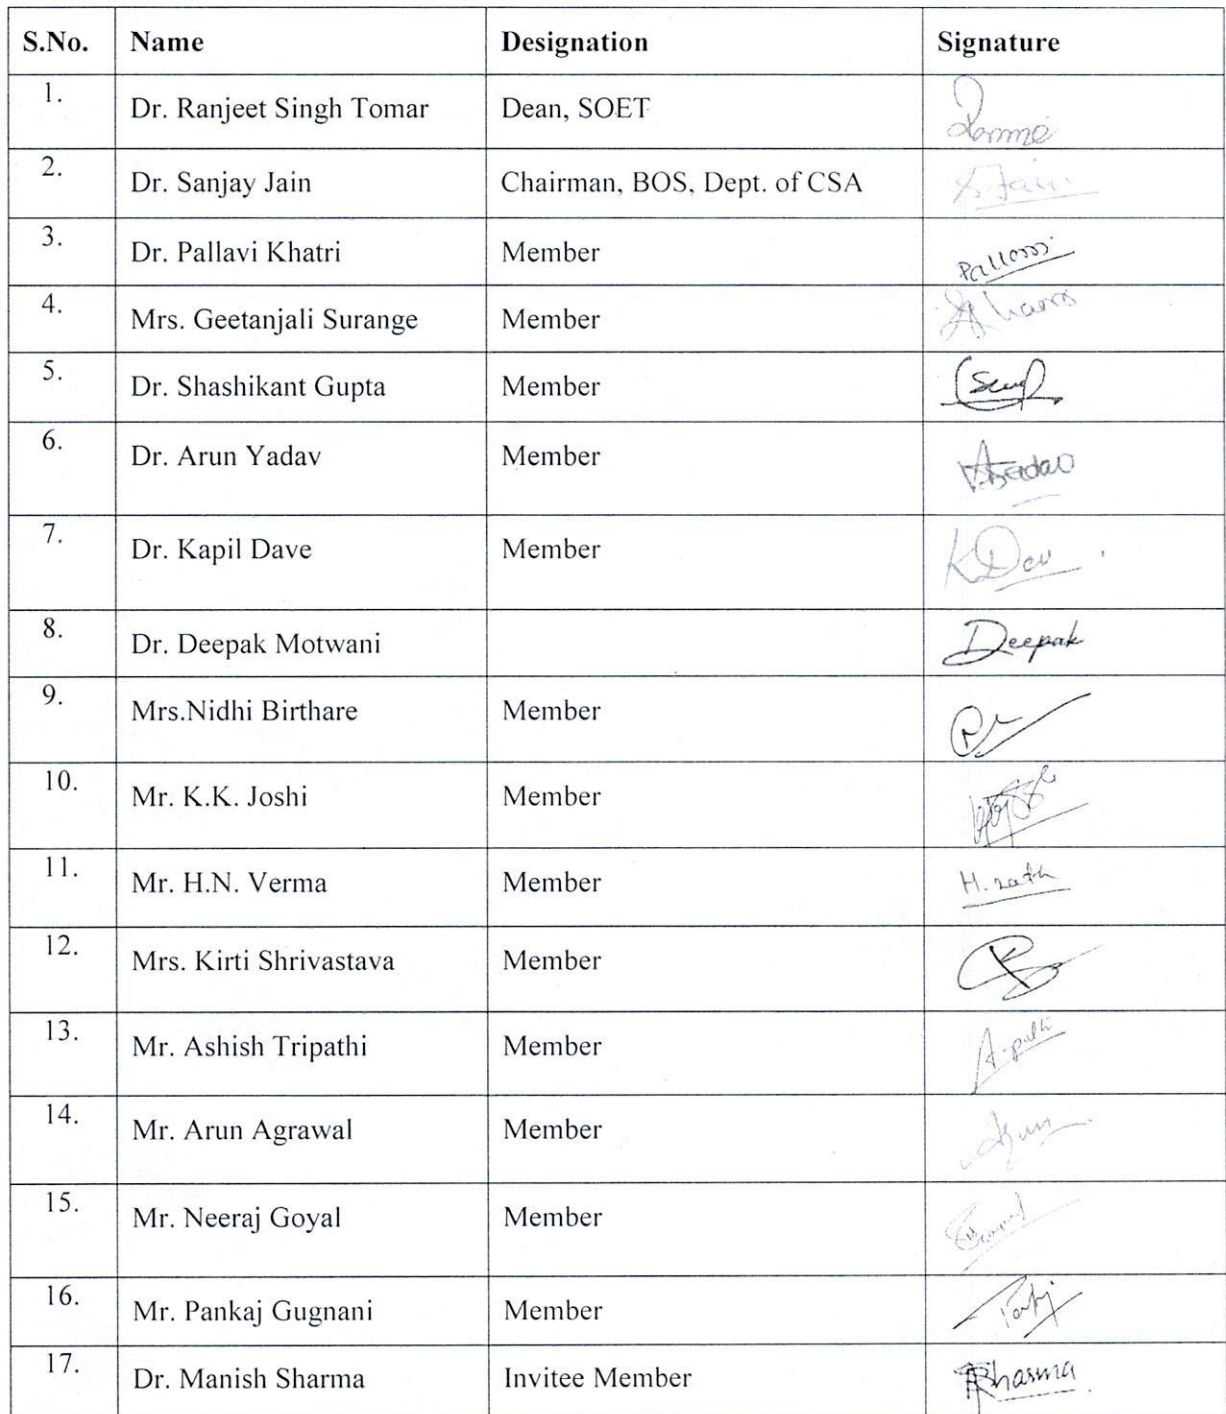 S.No. Name Designation Signature
1. Dr. Ranjeet Singh Tomar Dean, SOET
2. Dr. Sanjay Jain Chairman, BOS, Dept. of CSA S.Jain
3. Dr. Pallavi Khatri Member
4. Mrs. Geetanjali Surange Member
5. Dr. Shashikant Gupta Member
6. Dr. Arun Yadav Member
7. Dr. Kapil Dave Member
8. Dr. Deepak Motwani Deepak
9. Mrs.Nidhi Birthare Member
10. Mr. K.K. Joshi Member
11. Mr. H.N. Verma Member H.nath
12. Mrs. Kirti Shrivastava Member
13. Mr. Ashish Tripathi Member
14. Mr. Arun Agrawal Member
15. Mr. Neeraj Goyal Member
16. Mr. Pankaj Gugnani Member
17. Dr. Manish Sharma Invitee Member